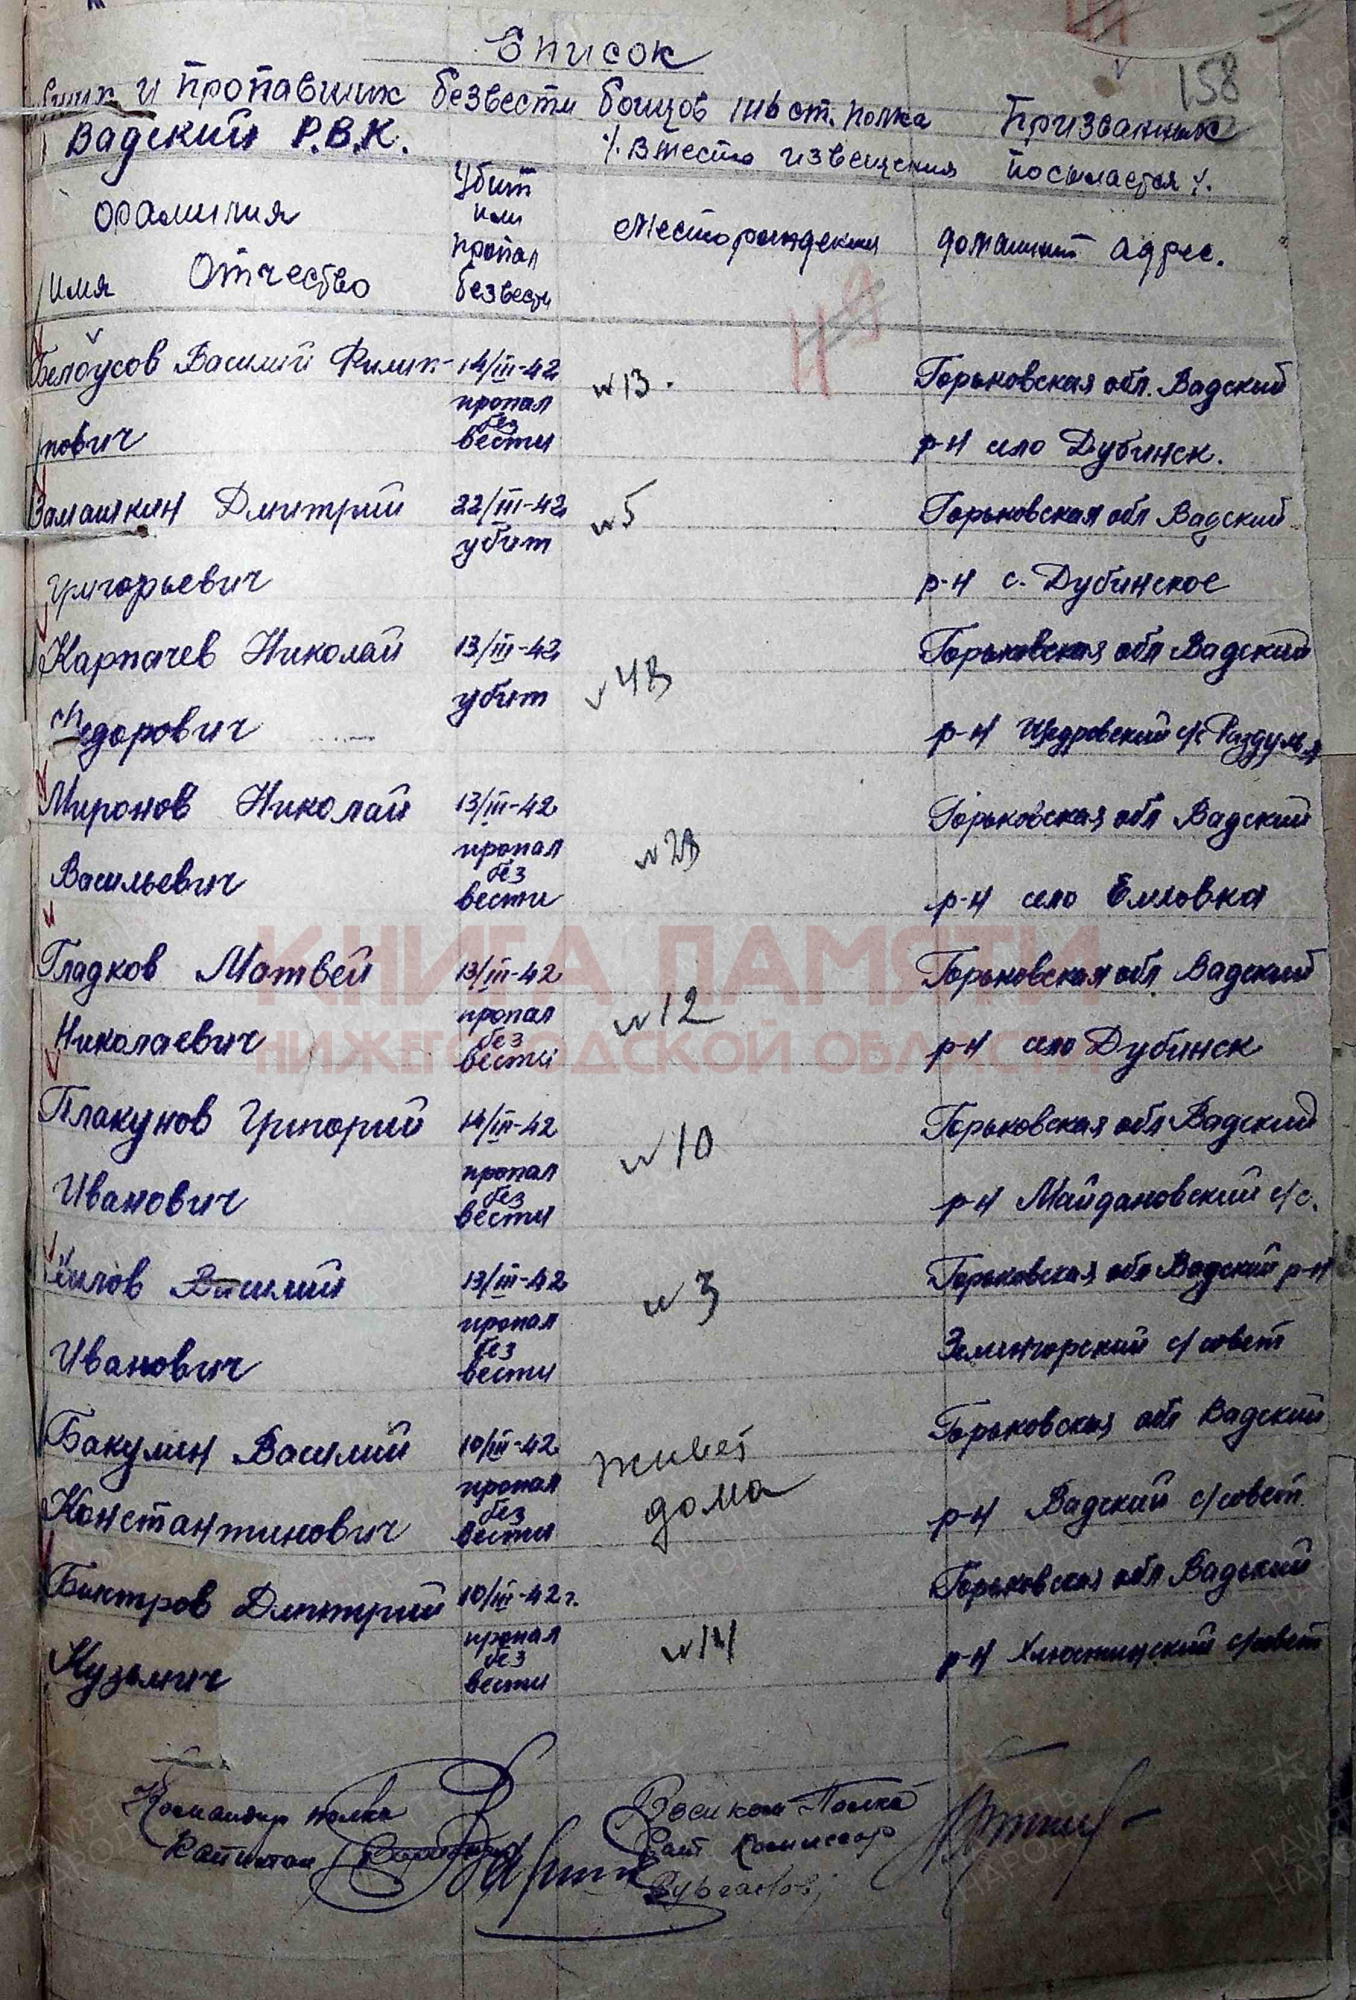 158
Список
и пропавших безвести бойцов 1146 ст. полка призванных
Вадский Р.В.К. /. Вместо извещения посылается /.
Фамилия Имя Отчество
Убит или пропал безвести
Месторождения
домашний адрес.
Белоусов Василий Филип- 14/III-42 №13. Горьковская обл. Вадский
пович пропал без вести р-н село Дубинск.
Замашкин Дмитрий 22/III-42 №5 Горьковская обл Вадский
Григорьевич убит р-н с. Дубинское
Карпачев Николай 13/III-42 №48 Горьковская обл Вадский
Федорович убит р-н с/с
Миронов Николай 13/III-42 Горьковская обл Вадский
Васильевич пропал без вести р-н село Елховка
Гладков Матвей 13/III-42 №12 Горьковская обл Вадский
Николаевич пропал без вести р-н село Дубинск
Плакунов Григорий 14/III-42 №10 Горьковская обл Вадский
Иванович пропал без вести р-н Майдановский с/с.
Василий 13/III-42 №3 Горьковская обл Вадский р-н
Иванович пропал без вести с/совет
Бакулин Василий 10/III-42 живет Горьковская обл Вадский
Константинович пропал без вести дома р-н Вадский с/совет
Дмитрий 10/III-42 г. №14 Горьковская обл Вадский
Кузьмич пропал без вести р-н с/совет
Командир полка
Капитан
Военком Полка
Бат комиссар
КНИГА ПАМЯТИ
НИЖЕГОРОДСКОЙ ОБЛАСТИ